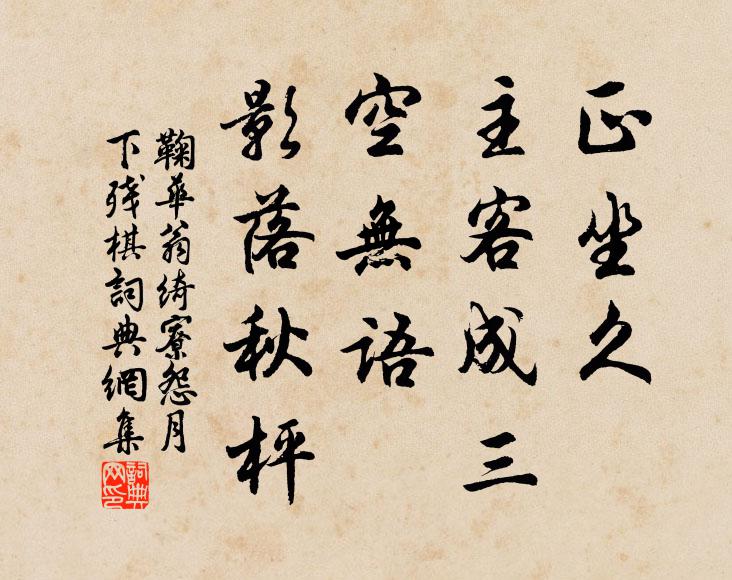 正坐久
主客成三
空無語
影落秋枰
鞠華翁綺寮怨月
下殘棋詞典網集
詞典
网印